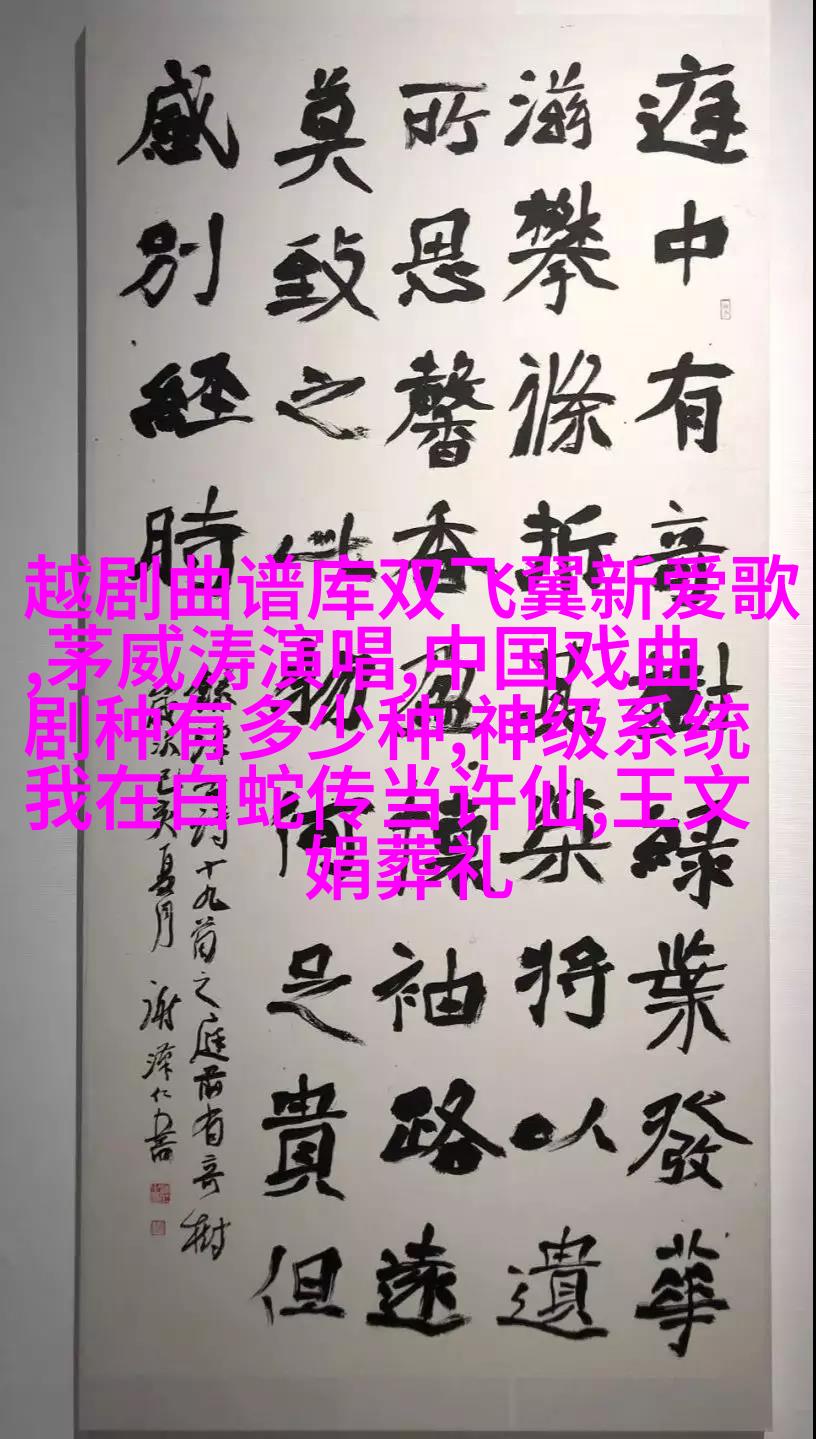 庭中有奇樹緑葉發華
滋攀條折其榮將以遺
所思馨香盈懷袖路遠
莫致之此物何足貴但
感別經時
詩十九首之庭前有奇樹
歲次己亥夏月 謝澤仁書
越剧曲谱库双飞翼新爱歌
,茅威涛演唱,中国戏曲
剧种有多少种,神级系统
我在白蛇传当许仙,王文
娟葬礼